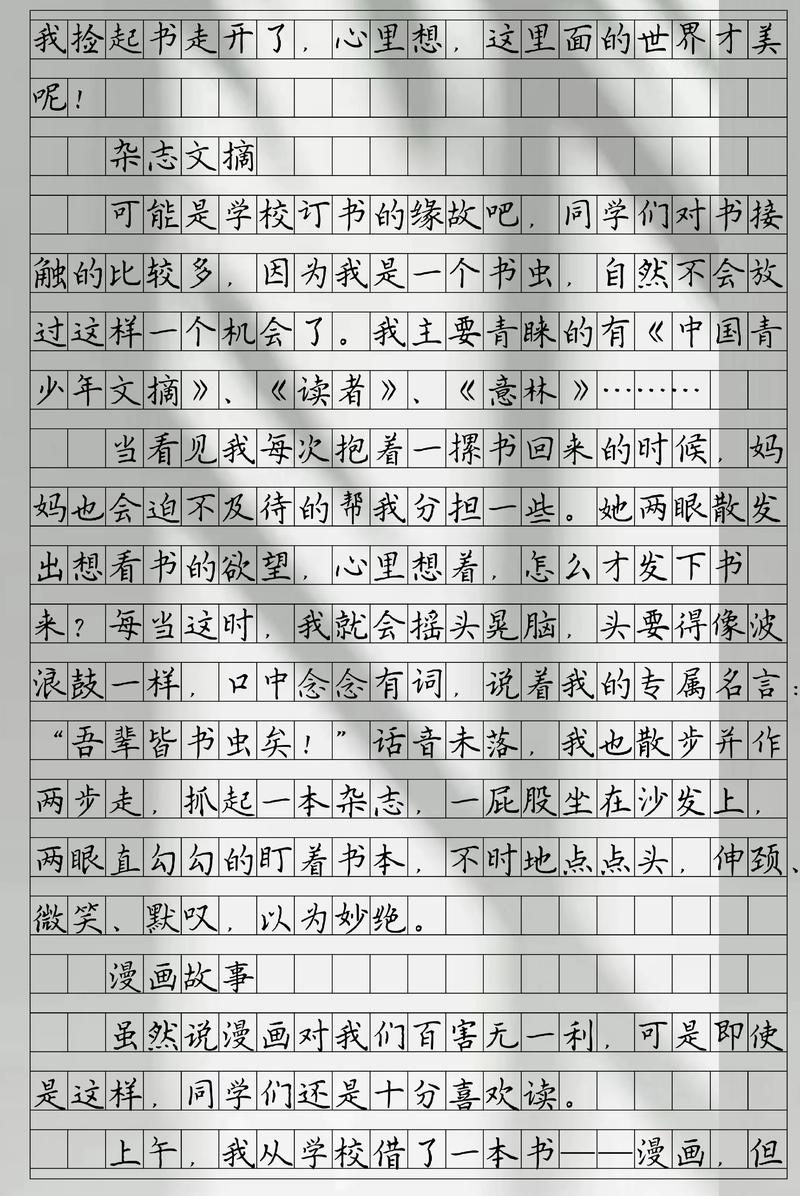 我捡起书走开了，心里想，这里面的世界才美
呢！
杂志文摘
可能是学校订书的缘故吧，同学们对书接
触的比较多，因为我是一个书虫，自然不会放
过这样一个机会了。我主要青睐的有《中国青
少年文摘》、《读者》、《意林》………
当看见我每次抱着一摞书回来的时候，妈
妈也会迫不及待的帮我分担一些。她两眼散发
出想看书的欲望，心里想着，怎么才发下书
来？每当这时，我就会摇头晃脑，头要得像波
浪鼓一样，口中念念有词，说着我的专属名言：
“吾辈皆书虫矣！”话音未落，我也散步并作
两步走，抓起一本杂志，一屁股坐在沙发上，
两眼直勾勾的盯着书本，不时地点点头，伸颈、
微笑、默叹，以为妙绝。
漫画故事
虽然说漫画对我们百害无一利，可是即使
是这样，同学们还是十分喜欢读。
上午，我从学校借了一本书——漫画，但